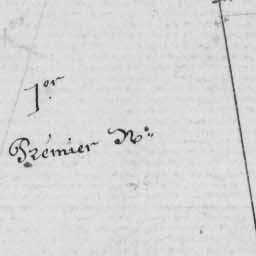 1er
Prémier No